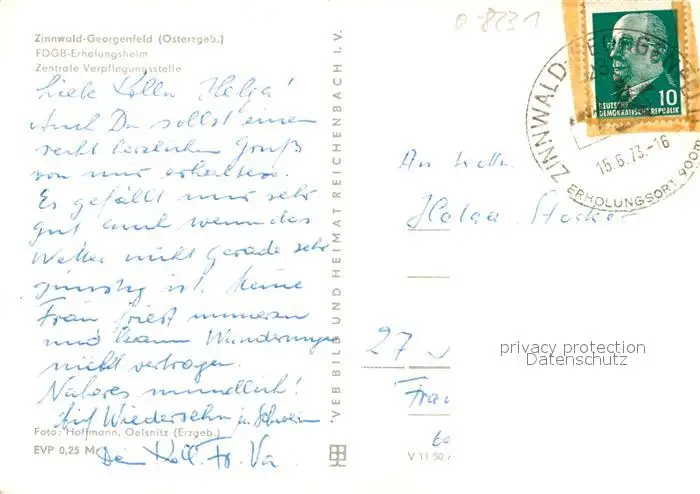 Zinnwald-Georgenfeld (Osterzgeb.)
FDGB-Erholungsheim
Zentrale Verpflegungsstelle
Liebe Kolln Helga!
Auch Du sollst einen
recht herzlichen Gruß
von mir erhalten.
Es gefällt mir sehr
gut auch wenn das
Wetter nicht gerade sehr
günstig ist. Meine
Frau friert immerzu
und kann Wanderungen
nicht vertragen.
Näheres mündlich!
Auf Wiedersehn in Schwerin
Foto: Hoffmann, Oelsnitz (Erzgeb.)
EVP 0,25 M
Dein Koll. Fr. Va
VEB BILD UND HEIMAT REICHENBACH I. V.
0-8231
10
DEUTSCHE
DEMOKRATISCHE REPUBLIK
ZINNWALD-GEORGENFELD
15.6.73.-16
ERHOLUNGSORT 900m
An Kolln
Helga Stocker
27
Frau
V 11 50
privacy protection
Datenschutz